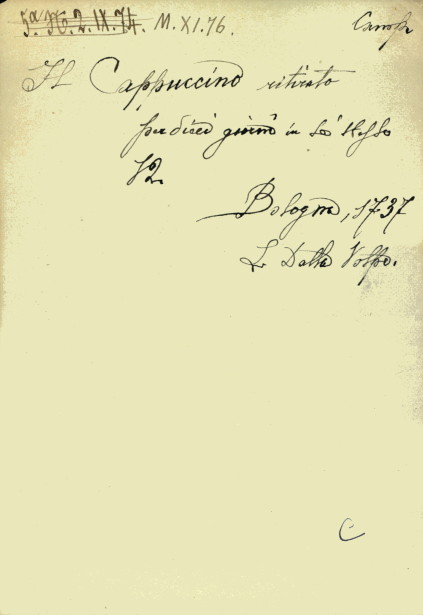 5ª H. 2. IX. 74. M. XI. 76.
Il Cappuccino ritirato
per dieci giorni in sé stesso
12
Bologna, 1737
L. Dalla Volpe.
C